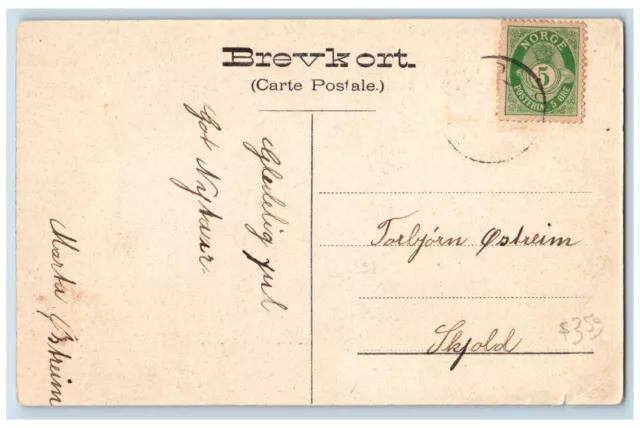 Brevkort.
(Carte Postale.)
NORGE
5
POSTFRIM. 5 ØRE
Glædelig jul
Got Nytaar.
Marta Østreim
Torbjörn Østreim
Skjold
$359